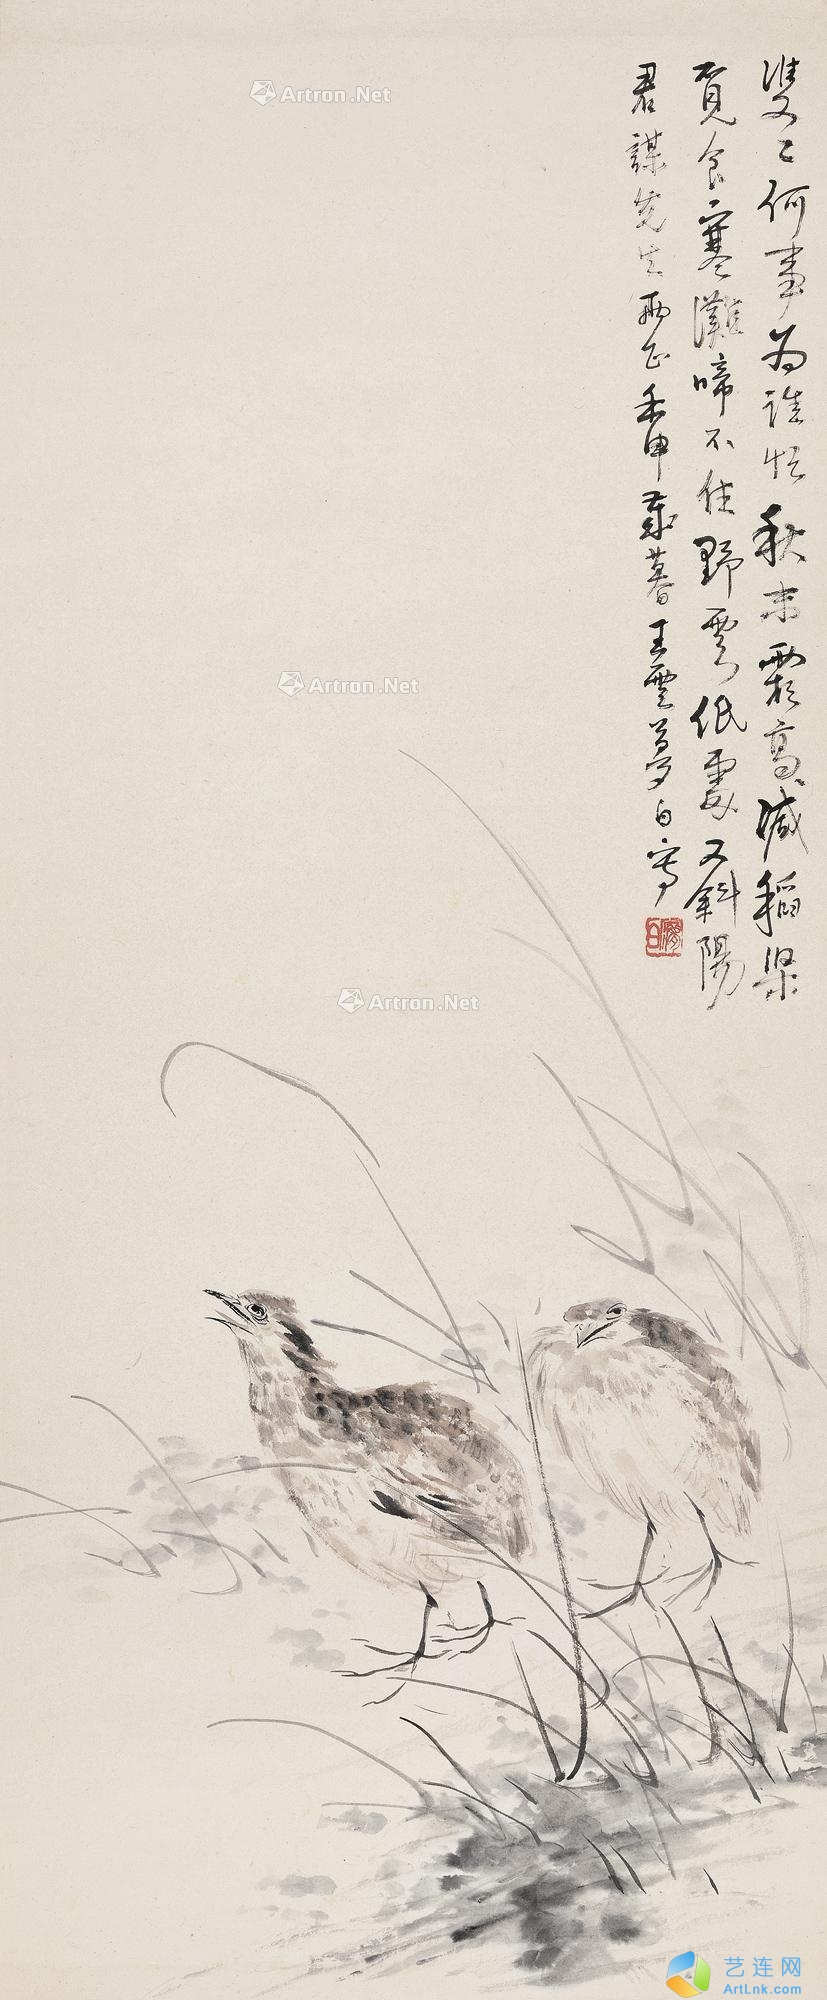 雙〻何事为誰忙秋末霜高減稻粱
覓食寒灘啼不住野雲低處又斜陽
君謀先生兩正壬申歲暮王雲夢白寫
夢白
Artron.Net
Artron.Net
Artron.Net
艺连网
ArtLnk.com